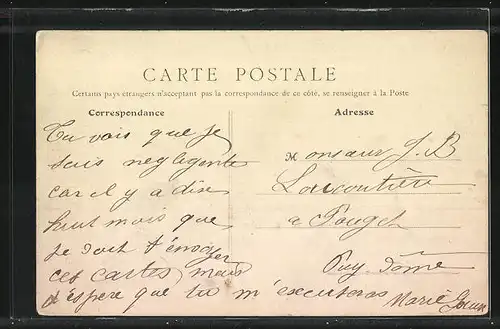 CARTE POSTALE
Certains pays étrangers n'acceptant pas la correspondance de ce côté, se renseigner à la Poste
Correspondance
Adresse
Tu vois que je
suis negligente
car il y a dix
huit mois que
je doit t'envoyer
cet cartes mais
j'éspere que tu m'excuseras Marie
Monsieur J. B
a
Puy-Dôme